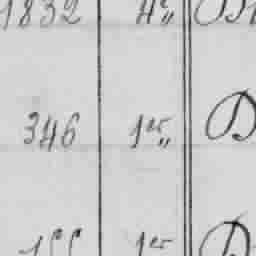 1832 4e„ D
346 1er„ D
1er D